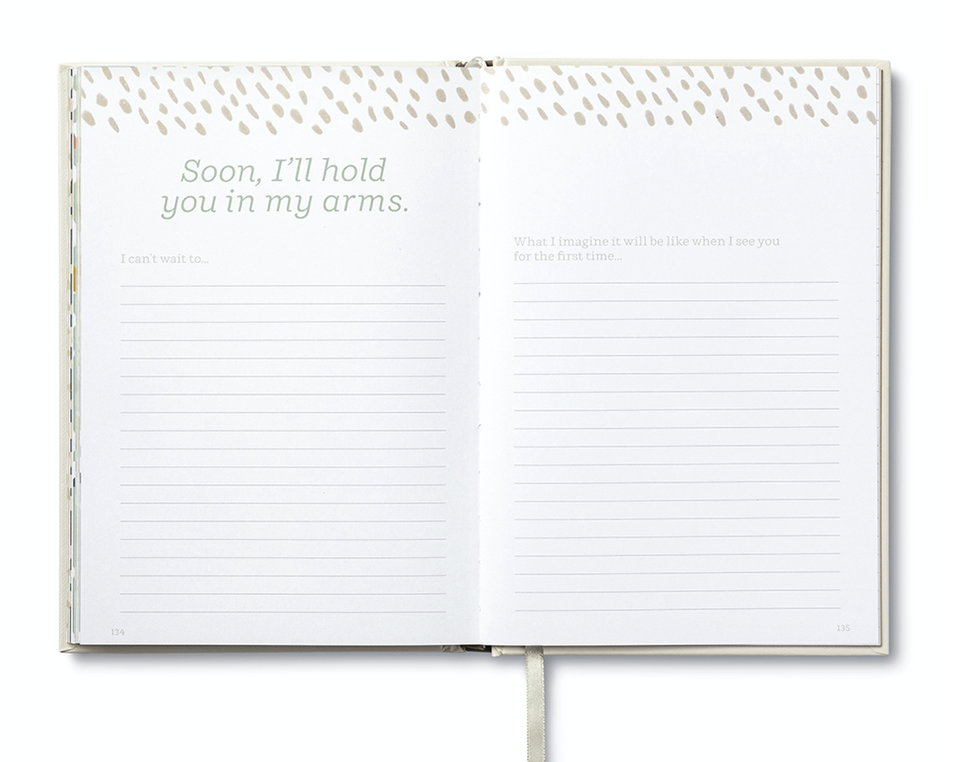 Soon, I'll hold
you in my arms.
I can't wait to...
134
What I imagine it will be like when I see you
for the first time...
135